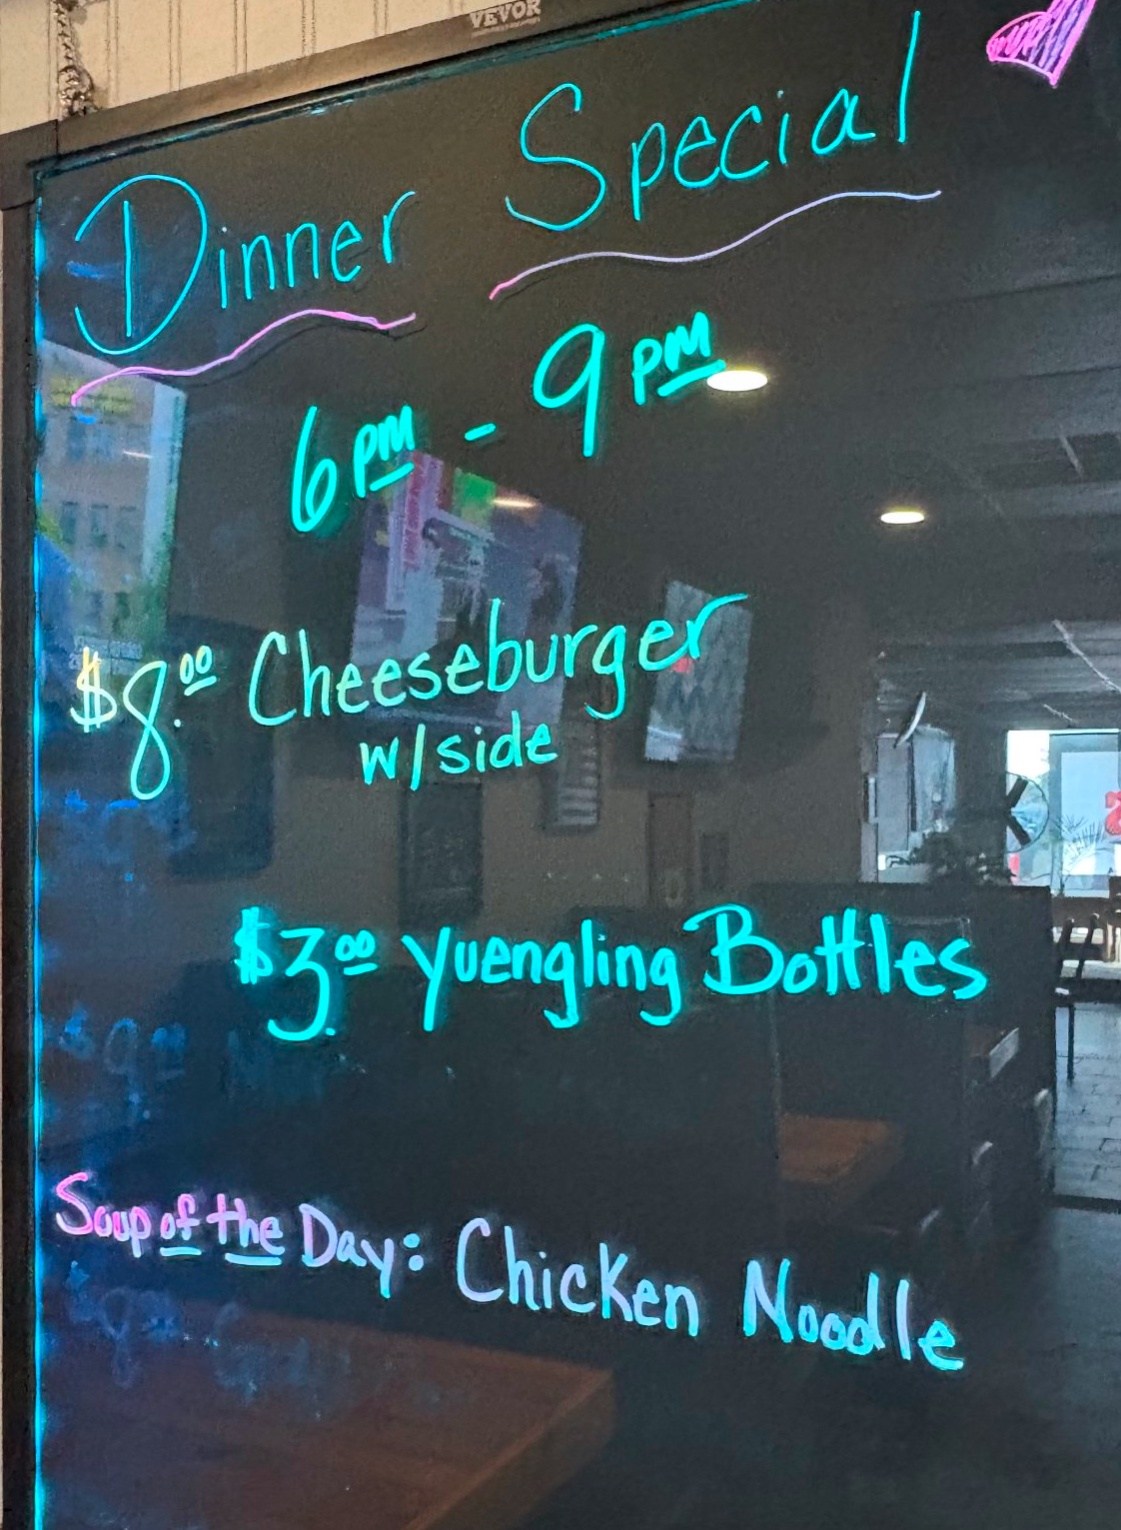 VEVOR
Dinner Special
6pm - 9pm
$8.00 Cheeseburger
w/side
$3.00 Yuengling Bottles
Soup of the Day: Chicken Noodle